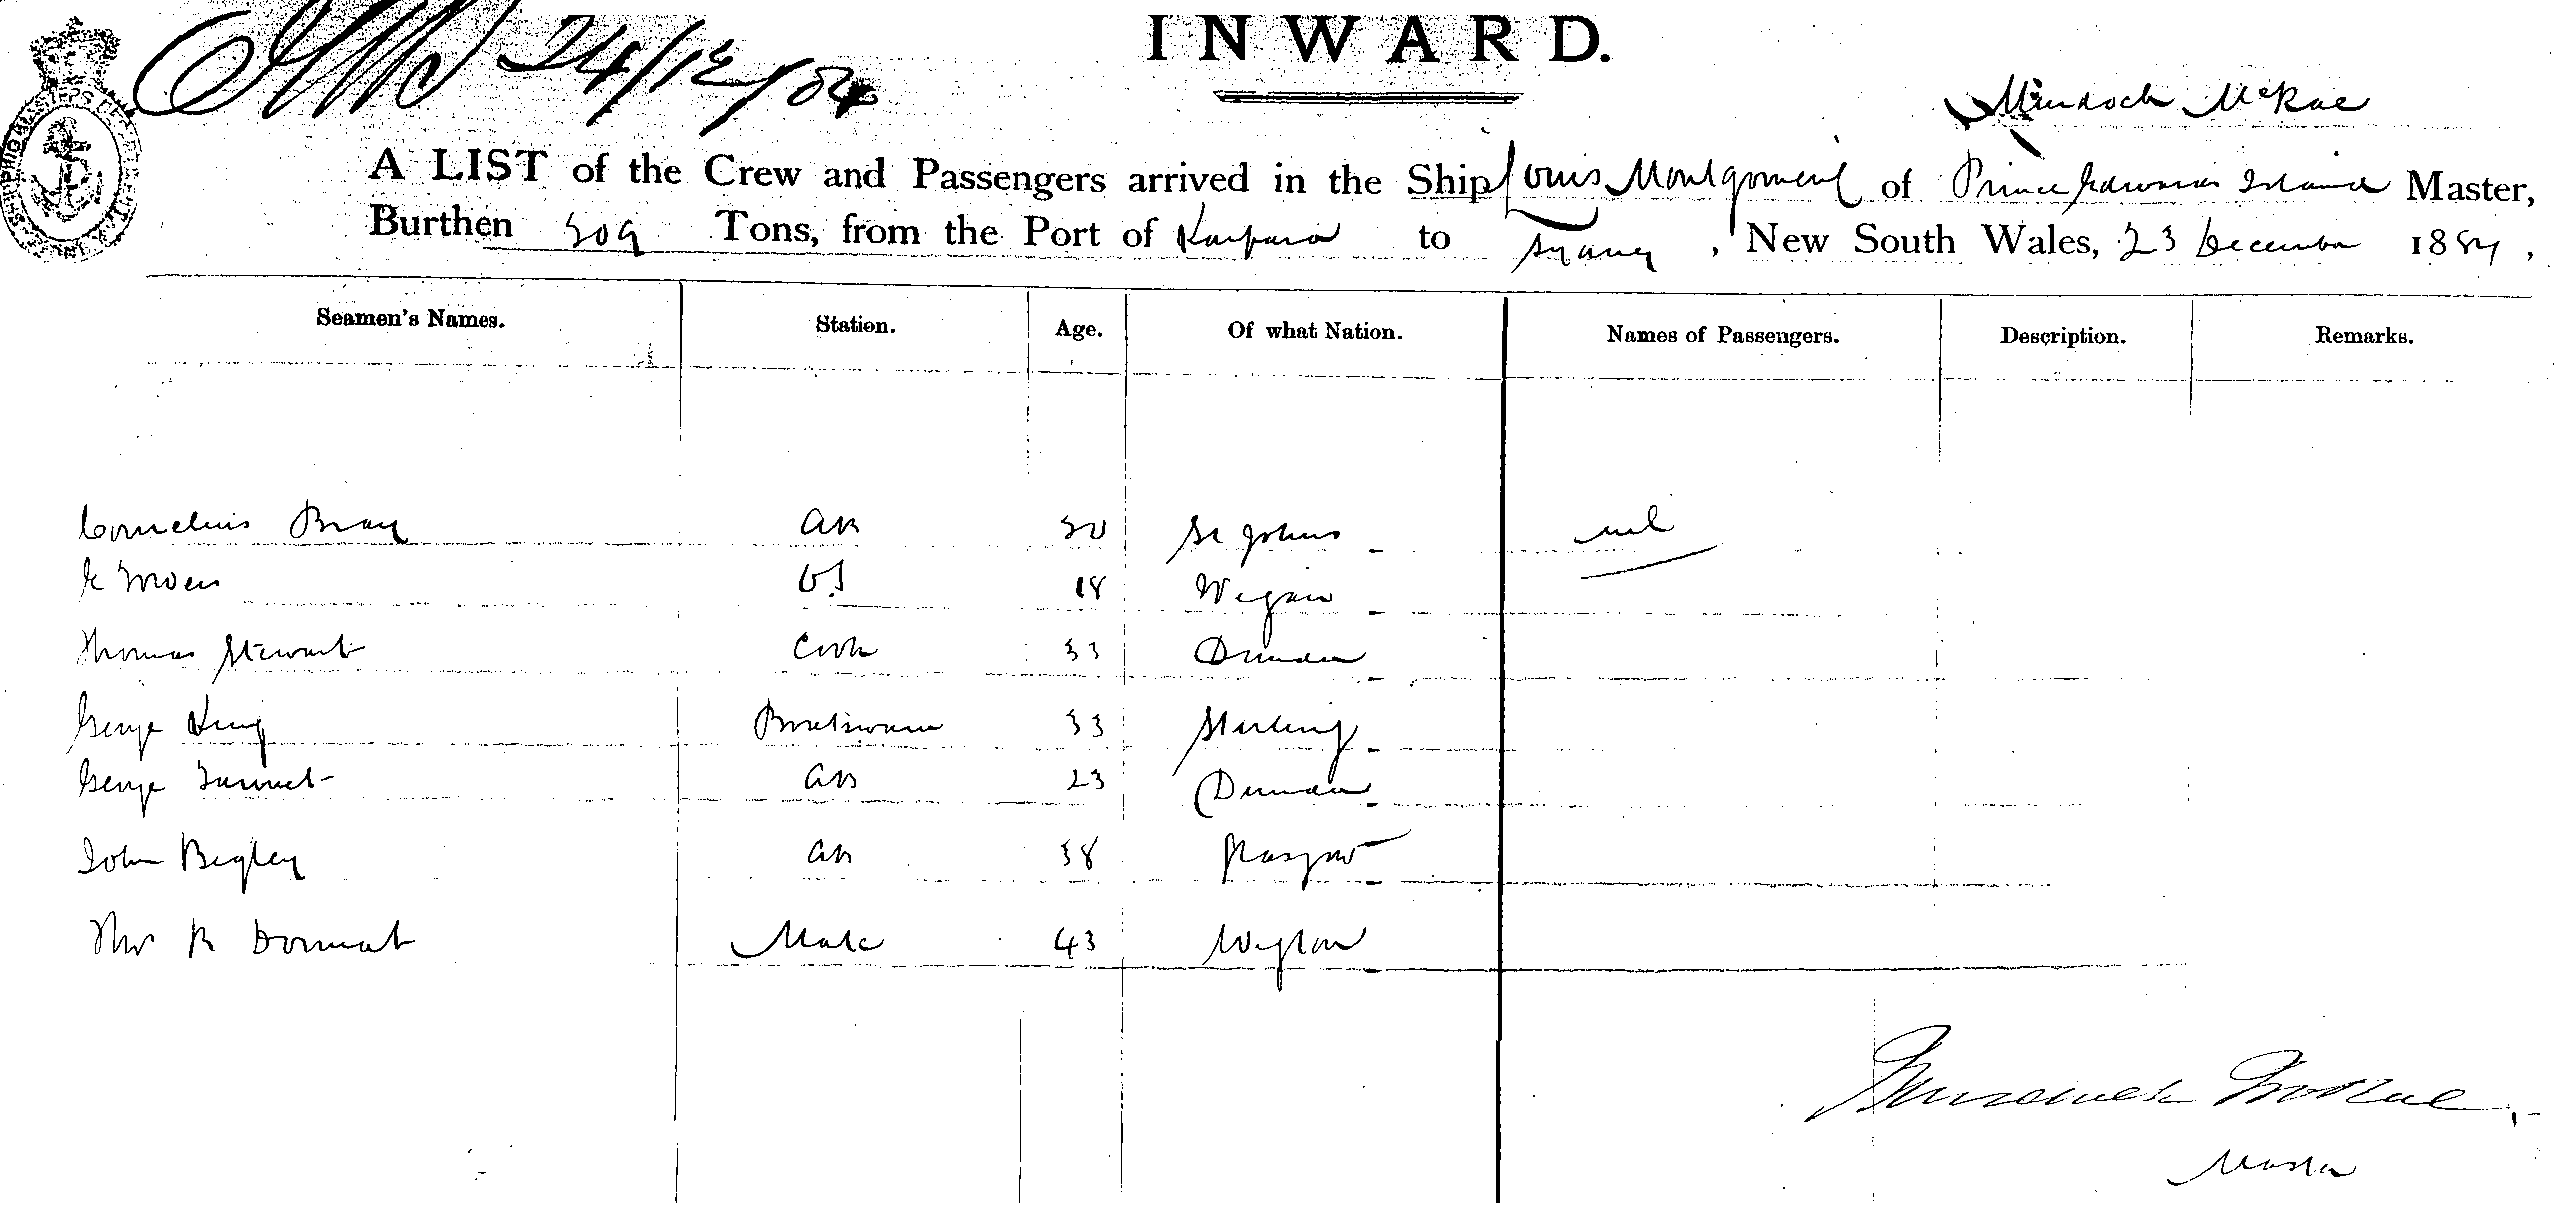 24/12/84
INWARD.
Murdoch McRae
A LIST of the Crew and Passengers arrived in the Ship Louis Montgomery of Prince Edward Island Master,
Burthen 309 Tons, from the Port of Kaipara to Sydney, New South Wales, 23 December 1884,
Seamen's Names. Station. Age. Of what Nation. Names of Passengers. Description. Remarks.
Cornelius Bray AB 30 St Johns nil
OS 18 Wigan
Thomas Stewart Cook 33 Dundee
George King Boatswain 33 Sterling
George AB 23 Dundee
John Begley AB 38 Glasgow
Thos R Mate 43 Wigton
Murdoch McRae
Master